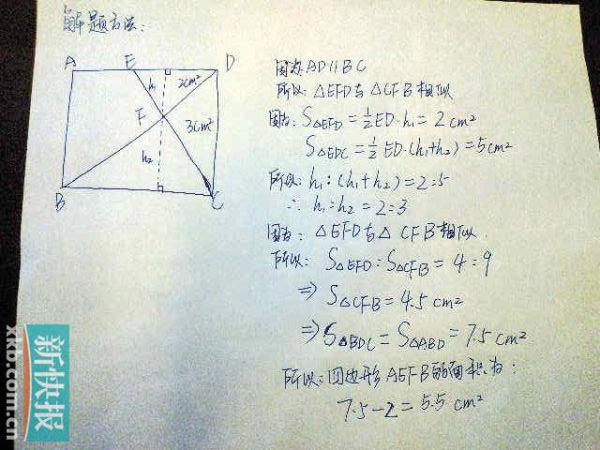 解题方法:
A
E
D
h₁
2cm²
F
3cm²
h₂
B
C
因为 AD∥BC
所以: △EFD与△CFB相似
因为: S△EFD = ½ED·h₁ = 2cm²
S△EDC = ½ED·(h₁+h₂) = 5cm²
所以: h₁:(h₁+h₂) = 2:5
∴ h₁:h₂ = 2:3
因为: △EFD与△CFB相似
所以: S△EFD : S△CFB = 4:9
⇒ S△CFB = 4.5cm²
⇒ S△BDC = S△ABD = 7.5cm²
所以: 四边形AEFB的面积为:
7.5-2 = 5.5cm²
新快报
xkb.com.cn